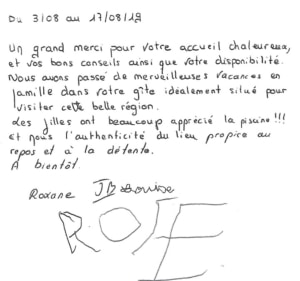 Du 3/08 au 17/08/19
Un grand merci pour votre accueil chaleureux,
et vos bons conseils ainsi que votre disponibilité.
Nous avons passé de merveilleuses vacances en
famille dans votre gîte idéalement situé pour
visiter cette belle région.
Les filles ont beaucoup apprécié la piscine !!!
Et nous l'authenticité du lieu propice au
repos et à la détente.
A bientôt.
Roxane JB Louise
ROSE